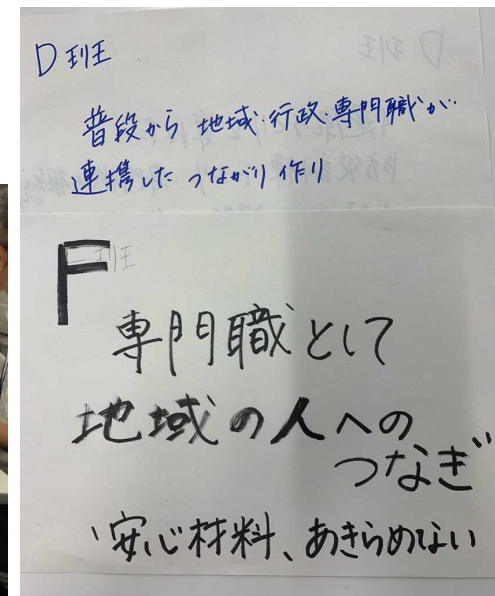 D班
普段から 地域・行政・専門職が
連携した つながり作り
F班
専門職として
地域の人への
つなぎ
安心材料、あきらめない